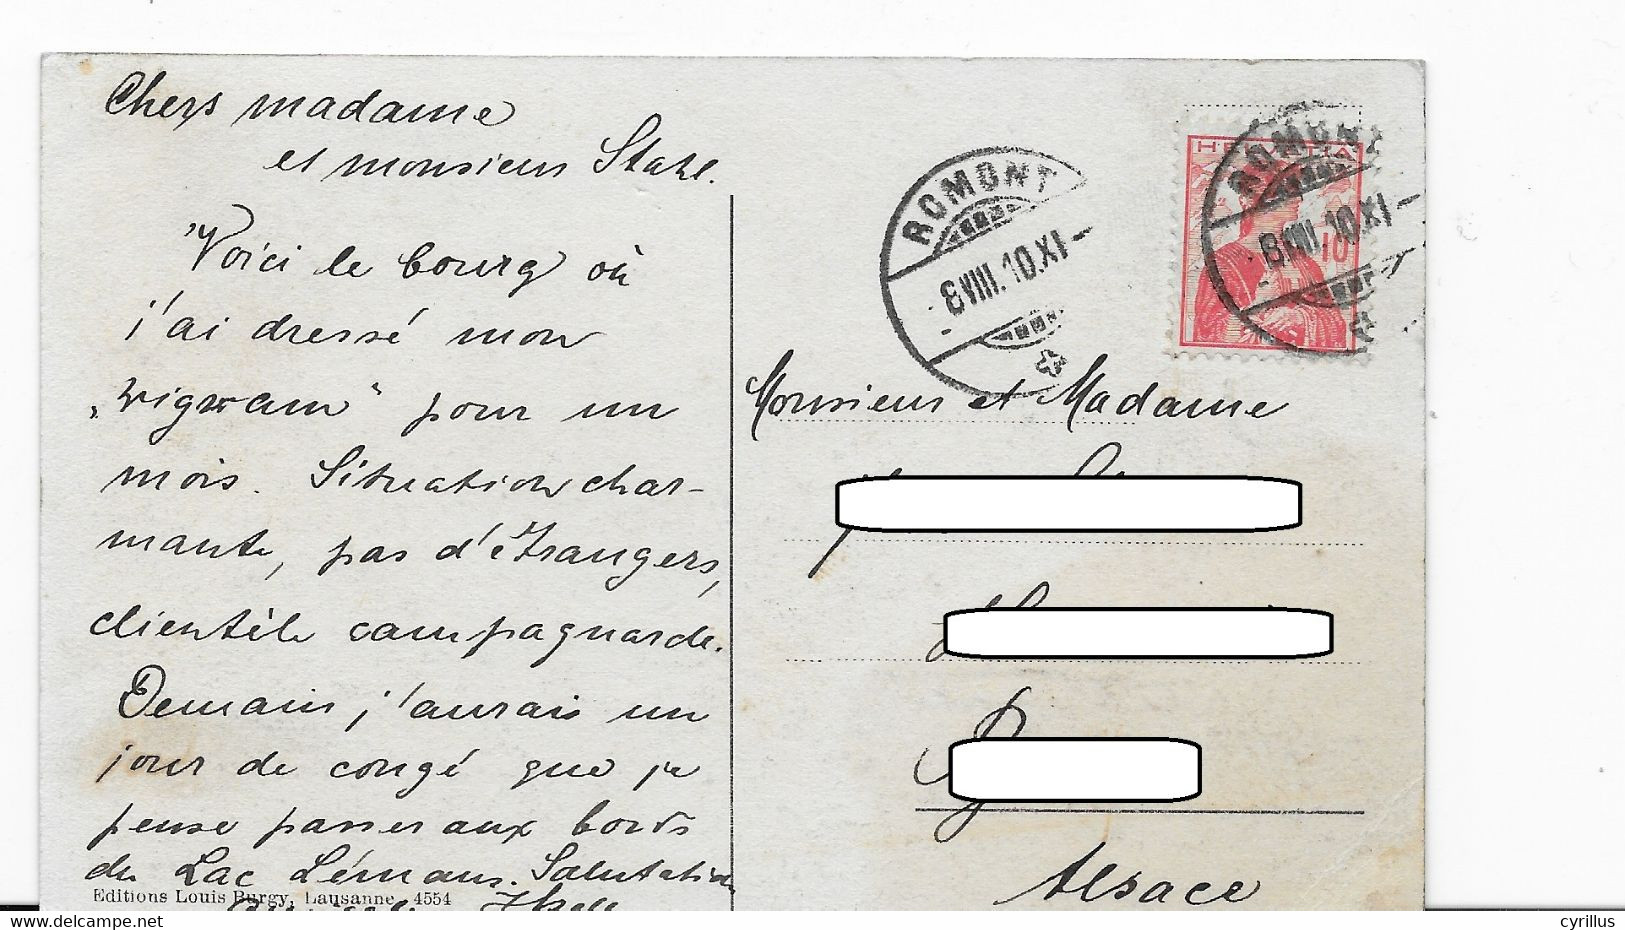 Chers madame
et monsieur Stahl.
Voici le bourg où
j'ai dressé mon
„wigwam“ pour un
mois. Situation char-
mante, pas d'étrangers,
clientèle campagnarde.
Demain j'aurais un
jour de congé que je
pense passer aux bords
du Lac Léman. Salutations
Editions Louis Burgy, Lausanne 4554
ROMONT
8 VIII. 10. XI-
HELVETIA
10
ROMONT
8 VIII. 10. XI-
Monsieur et Madame
Alsace
delcampe.net
cyrillus